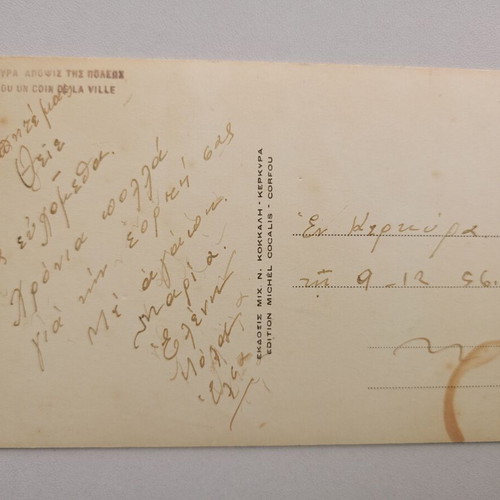 ΥΡΑ ΑΠΟΨΙΣ ΤΗΣ ΠΟΛΕΩΣ
OU UN COIN DE LA VILLE
Θεῖε
εὐχόμεθα
Χρόνια πολλά
γιά τήν ἑορτή σας
Μέ ἀγάπη
Μαρία
Ἑλένη
ΕΚΔΟΣΙΣ ΜΙΧ. Ν. ΚΟΚΚΑΛΗ - ΚΕΡΚΥΡΑ
EDITION MICHEL COCALIS - CORFOU
Ἐν Κερκύρᾳ
τῇ 9-12 56